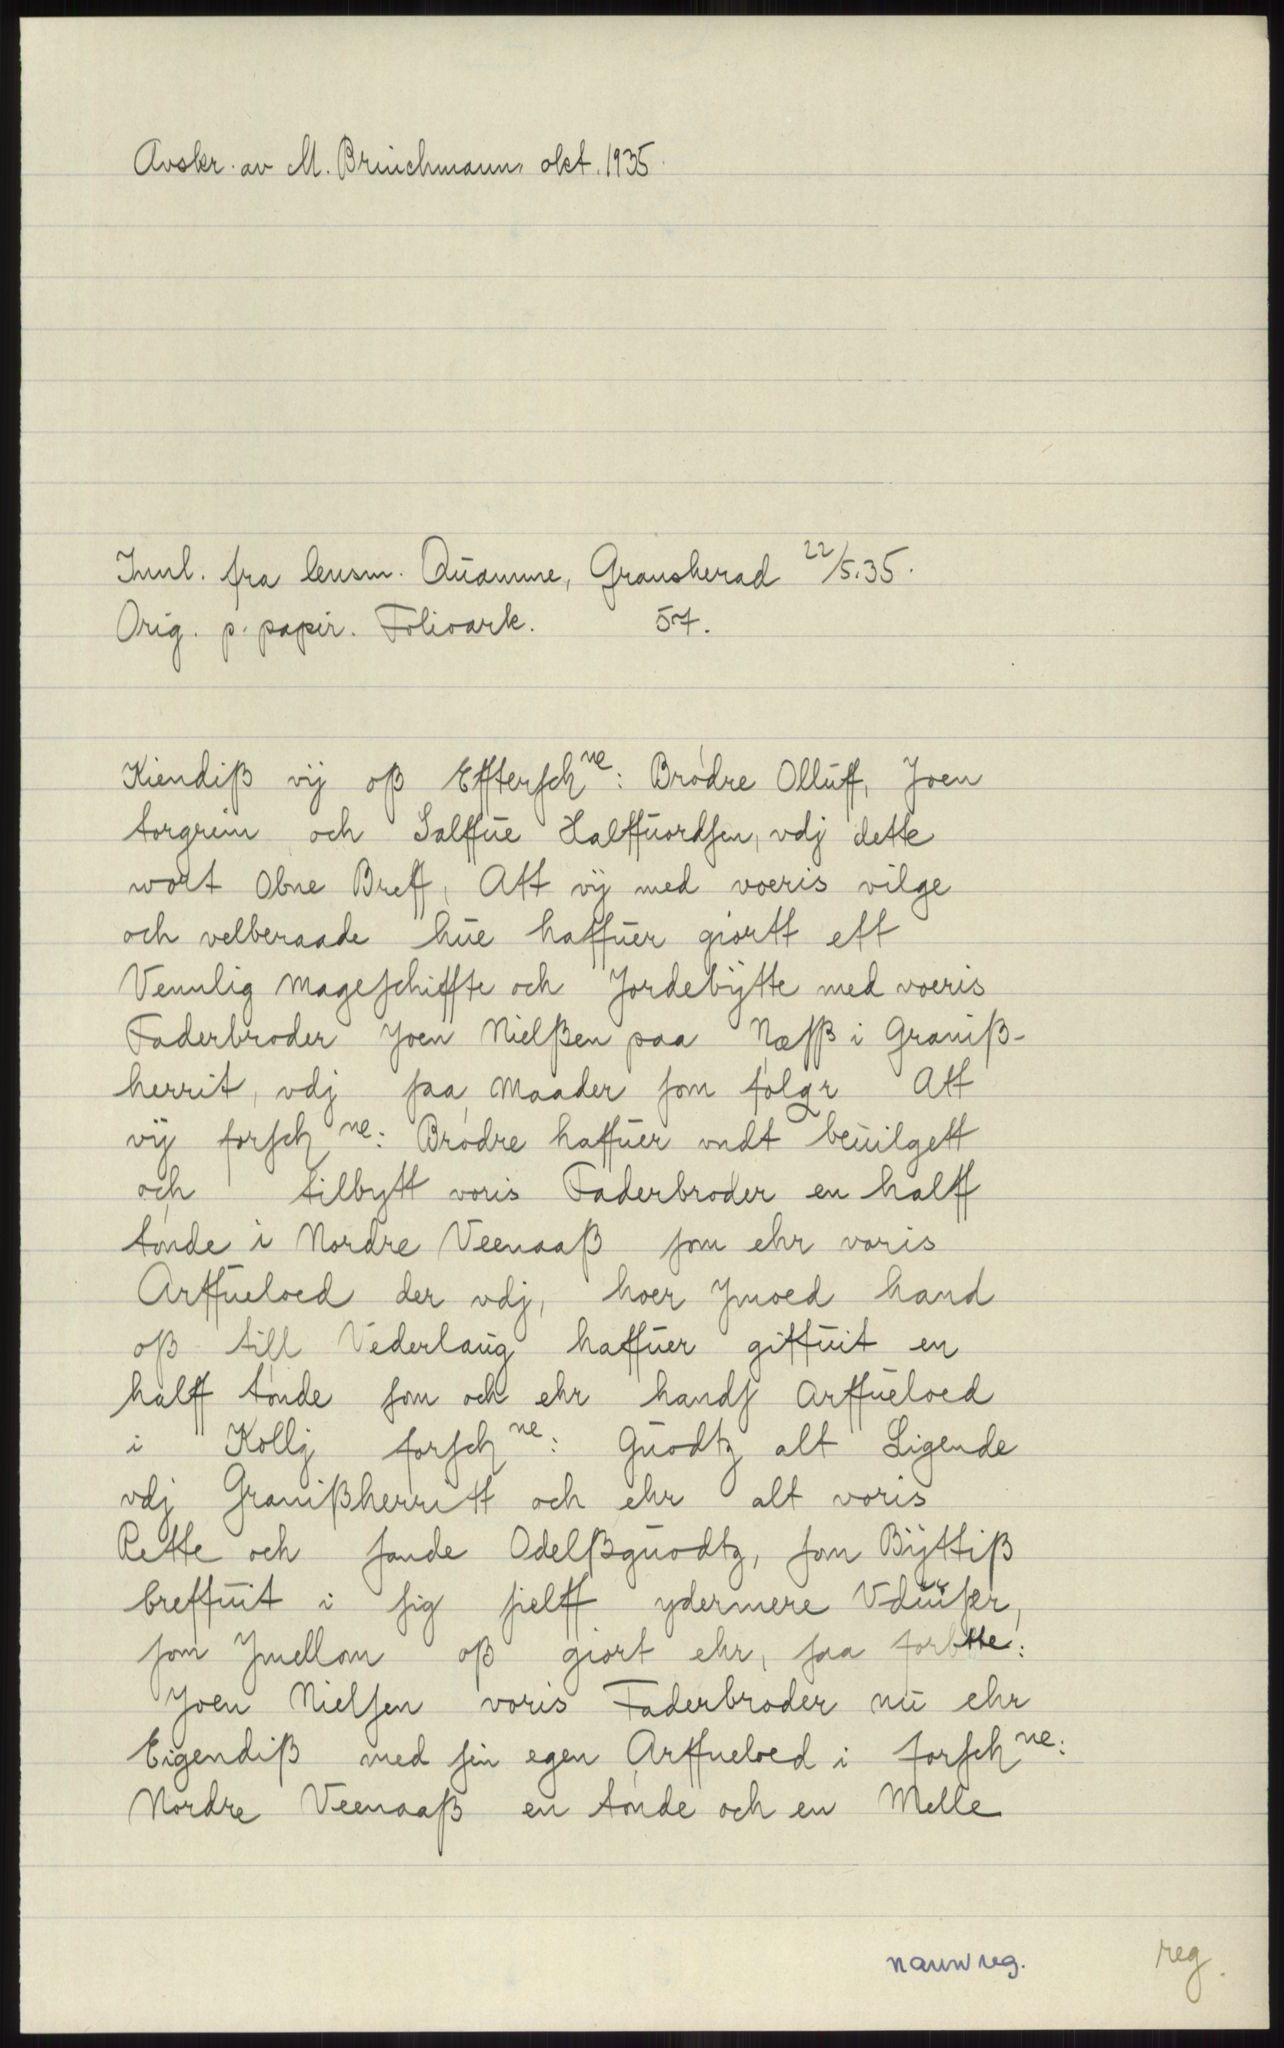 Avskr. av M. Brinchmann, okt. 1935.
Innl. fra lensm. Quamme, Gransherad 22/5.35.
Orig. p. papir. Folioark. 57.
Kiendiß vij oß Effterschne: Brødre Olluff, Joen
torgrim och Salffue Halffuordsen, vdj dette
wort obne Breff, Att vij med voeris vilge
och velberaade hue haffuer giortt ett
Vennlig mageschiffte och Jordebÿtte med voeris
Faderbroder Joen Nielßen paa Næsß i Graniß-
herrit, vdj saa maader som følgr Att
vij forschne: Brødre haffuer vndt beuilgett
och tilbytt voris Faderbroder en halff
tønde i Nordre Veenaaß som ehr voris
Arffueloed der vdj, hoer Jmoed hand
oß till Vederlaug haffuer giffuit en
halff tønde som och ehr hands Arffueloed
i Kollj forschne: Guodtz alt Ligende
vdj Granißherritt och ehr alt voris
Rette och sande Odelßguodtz, som Bÿttiß
breffuit i sig sielff ydermere Vduiser,
som Jmellom oß giort ehr, saa forbtte:
Joen Nielsen voris Faderbroder nu ehr
Eigendiß med sin egen Arffueloed i forschne:
Nordre Veenaaß en tønde och en Melle
navnreg. reg.